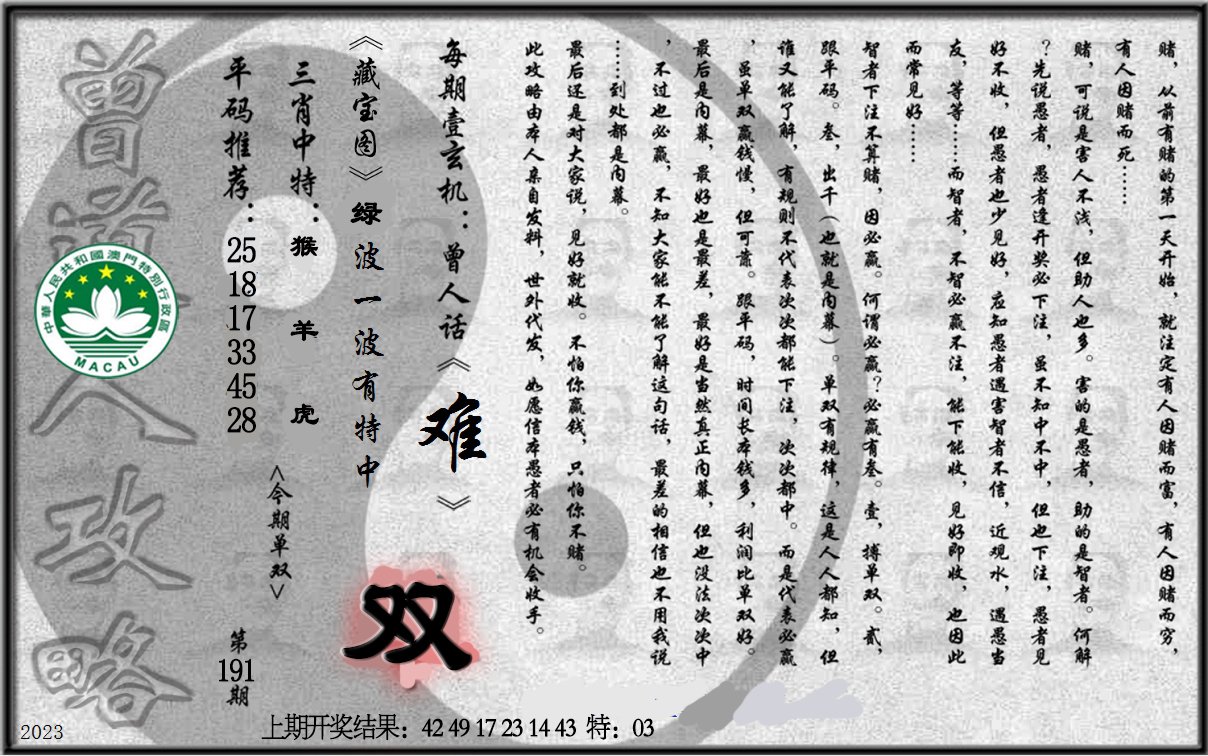 赌，从前有赌的第一天开始，就注定有人因赌而富，有人因赌而穷，
有人因赌而死……
赌，可说是害人不浅，但助人也多。害的是愚者，助的是智者。何解
？先说愚者，愚者逢开奖必下注，虽不知中不中，但也下注，愚者见
好不收，但愚者也少见好，应知愚者遇害智者不信，近观水，遇愚当
友，等等……而智者，不智必赢不注，能下能收，见好即收，也因此
而常见好……
智者下注不算赌，因必赢。何谓必赢？必赢有叁。壹，搏单双。贰，
跟平码。叁，出千（也就是内幕）。单双有规律，这是人人都知，但
谁又能了解，有规则不代表次次都能下注，次次都中。而是代表必赢
，虽单双赢钱慢，但可靠。跟平码，时间长本钱多，利润比单双好。
最后是内幕，最好也是最差，最好是当然真正内幕，但也没法次次中
，不过也必赢，不知大家能不能了解这句话，最差的相信也不用我说
……到处都是内幕。
最后还是对大家说，见好就收。不怕你赢钱，只怕你不赌。
此攻略由本人亲自发料，世外代发，如愿信本愚者必有机会收手。
每期壹玄机：曾人话《难》
《藏宝图》绿波一波有特中
双
三肖中特：猴 羊 虎
<今期单双>
平码推荐：25 18 17 33 45 28
第191期
曾道人攻略
中華人民共和國澳門特別行政區
MACAU
2023
上期开奖结果：42 49 17 23 14 43 特：03